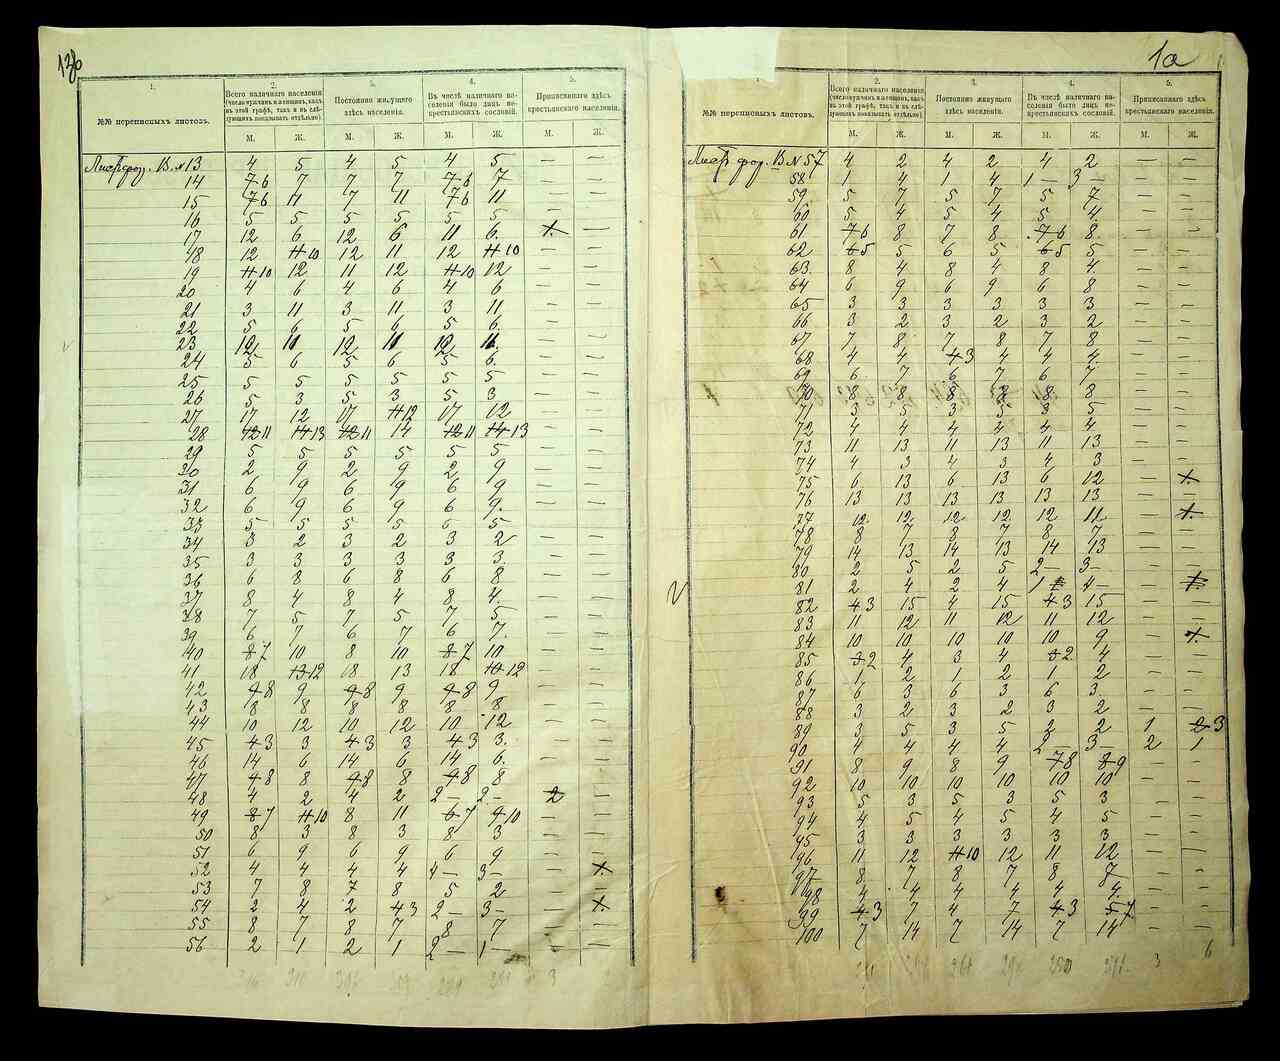 136
1.
2.
Всего наличнаго населенія
(число мужчинъ и женщинъ, какъ
въ этой графѣ, такъ и въ слѣ-
дующихъ показывать отдѣльно).
3.
Постоянно живущаго
здѣсь населенія.
4.
Въ числѣ наличнаго на-
селенія было лицъ не-
крестьянскихъ сословій.
5.
Приписаннаго здѣсь
крестьянскаго населенія.
№№ переписныхъ листовъ.
М. Ж. М. Ж. М. Ж. М. Ж.
Лист фор. В. № 13 4 5 4 5 4 5 — —
14 7 6 7 7 7 7 6 7 — —
15 7 6 11 7 11 7 6 11 — —
16 5 5 5 5 5 5 — —
17 12 6 12 6 11 6. 1. —
18 12 11 10 12 11 12 11 10 — —
19 11 10 12 11 12 11 10 12 — —
20 4 6 4 6 4 6 — —
21 3 11 3 11 3 11 — —
22 5 6 5 6 5 6. — —
23 12 10 12 10 12 — —
24 5 6 5 6 5 6. — —
25 5 5 5 5 5 5 — —
26 5 3 5 3 5 3 — —
27 17 12 17 11 12 17 12 — —
28 12 11 14 13 12 11 14 12 11 14 13 — —
29 5 5 5 5 5 5 — —
30 2 9 2 9 2 9 — —
31 6 9 6 9 6 9 — —
32 6 9 6 9 6 9. — —
33 5 5 5 5 5 — —
34 3 2 3 2 3 2 — —
35 3 3 3 3 3 3. — —
36 6 8 6 8 6 8 — —
37 8 4 8 4 8 4. — —
38 7 5 7 5 7 5. — —
39 6 7 6 7 6 7. — —
40 8 7 10 8 10 8 7 10 — —
41 18 13 12 18 13 18 12 — —
42 9 8 9 9 8 9 9 8 9 — —
43 8 8 8 8 8 8 — —
44 10 12 10 12 10 12 — —
45 4 3 3 4 3 3 4 3 3. — —
46 14 6 14 6 14 6. — —
47 8 8 8 8 8 8 — —
48 4 2 4 2 2 — 2 — 2 —
49 8 7 11 10 8 11 7 9 10 — —
50 8 3 8 3 8 3 — —
51 6 9 6 9 6 9 — —
52 4 4 4 4 4 — 3 — — 1.
53 7 8 7 8 5 2 — —
54 2 4 2 4 3 2 — 3 — — 1.
55 8 7 8 7 8 7 — —
56 2 1 2 1 2 — 1 — — —
3
1а
2.
Всего наличнаго населенія
(число мужчинъ и женщинъ, какъ
въ этой графѣ, такъ и въ слѣ-
дующихъ показывать отдѣльно).
3.
Постоянно живущаго
здѣсь населенія.
4.
Въ числѣ наличнаго на-
селенія было лицъ не-
крестьянскихъ сословій.
5.
Приписаннаго здѣсь
крестьянскаго населенія.
№№ переписныхъ листовъ.
М. Ж. М. Ж. М. Ж. М. Ж.
Лист фор. В № 57 4 2 4 2 4 2 — —
58 1 4 1 4 1 — 3 — — —
59 5 7 5 7 5 7 — —
60 5 4 5 4 5 4. — —
61 7 6 8 7 8 7 6 8. — —
62 6 5 5 6 5 6 5 5 — —
63. 8 4 8 4 8 4. — —
64 6 9 6 9 6 8 — —
65 3 3 3 3 3 3 — —
66 3 2 3 2 3 2 — —
67 7 8 7 8 7 8 — —
68 4 4 4 3 4 4 4. — —
69 6 7 6 7 6 7 — —
70 8 8 8 8 8 8 — —
71 3 5 3 5 3 5 — —
72 4 4 4 4 4 4 — —
73 11 13 11 13 11 13 — —
74 4 3 4 3 4 3 — —
75 6 13 6 13 6 12 — 1.
76 13 13 13 13 13 13 — —
77 12 12 12 12 12 11 — 1.
78 8 7 8 7 8 7 — —
79 14 13 14 13 14 13 — —
80 2 5 2 5 2 — 3 — — —
81 2 4 2 4 1 — 1.
82 4 3 15 4 15 4 3 15 — —
83 11 12 11 12 11 12 — —
84 10 10 10 10 10 9 — 1.
85 3 2 4 3 4 3 2 4 — —
86 1 2 1 2 1 2 — —
87 6 3 6 3 6 3. — —
88 3 2 3 2 3 2 — —
89 3 5 3 5 2 2 1 2 3
90 4 4 4 4 2 — 3 — 2 1
91 8 9 8 9 7 8 8 9 — —
92 10 10 10 10 10 10 — —
93 5 3 5 3 5 3 — —
94 4 5 4 5 4 5 — —
95 3 3 3 3 3 3 — —
96 11 12 11 10 12 11 12 — —
97 8 7 8 7 8 — —
98 4 4 4 4 4 4. — —
99 4 3 7 4 7 4 3 5 7 — —
100 7 14 7 14 7 14 — —
3 6